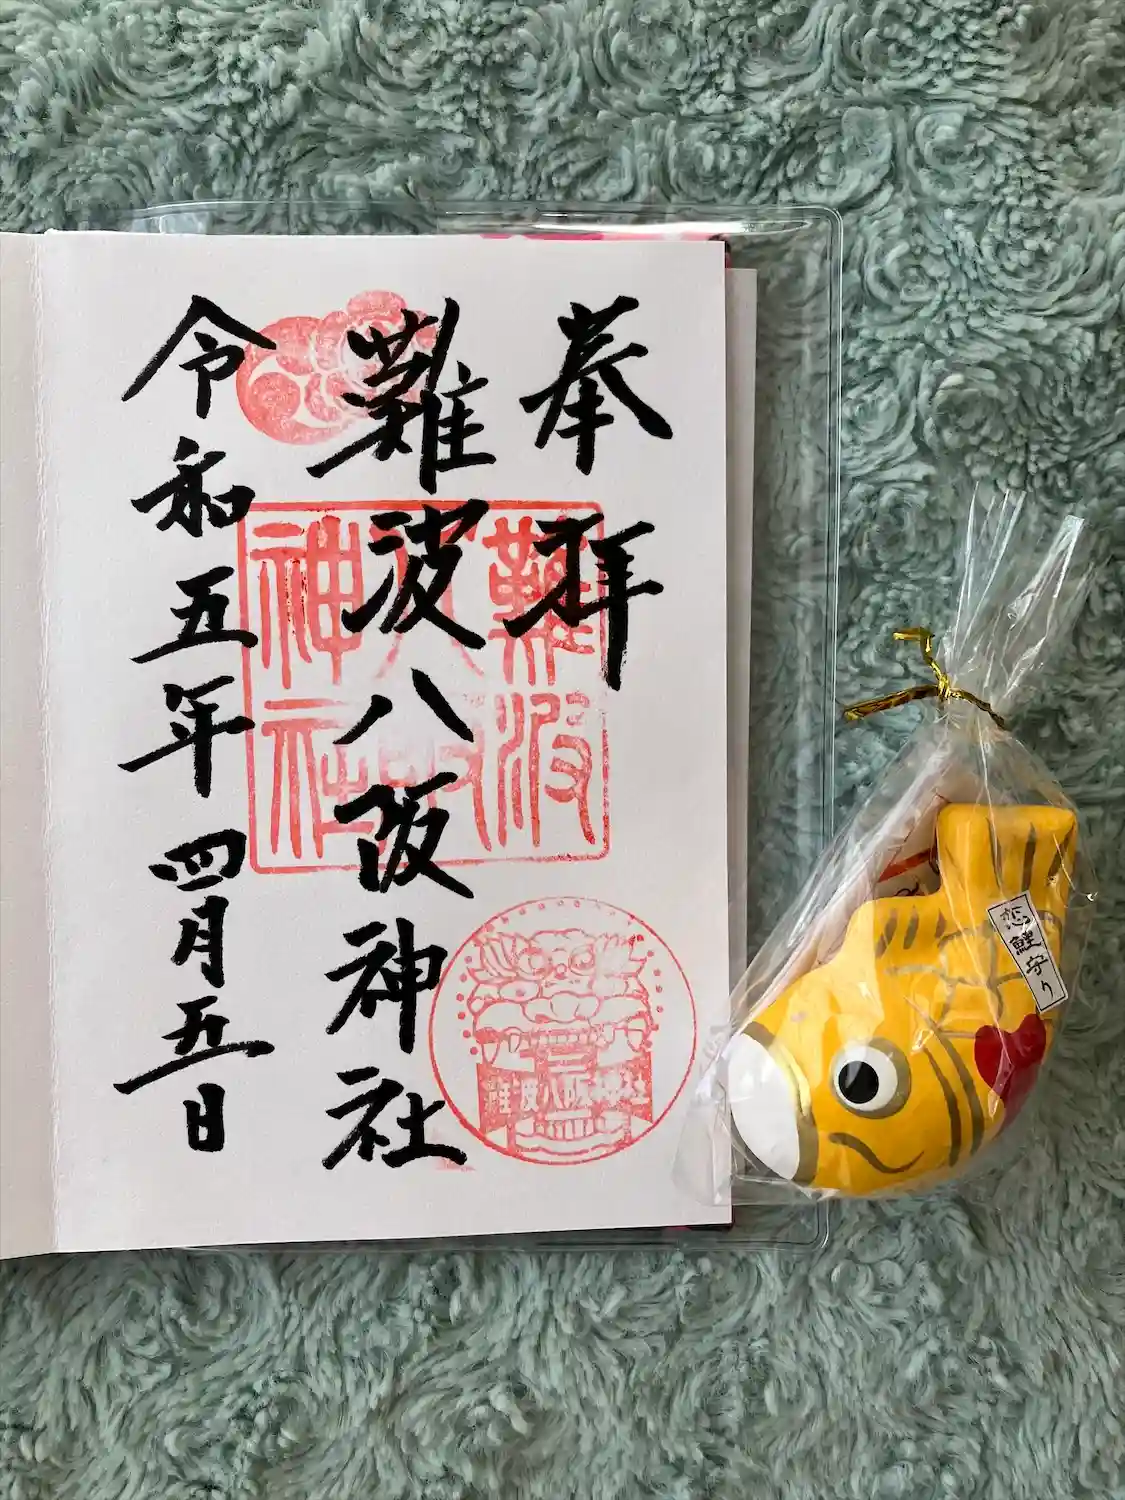 奉拝
難波八阪神社
令和五年四月五日
難波
八阪
神社
難波八阪神社
恋鯉守り